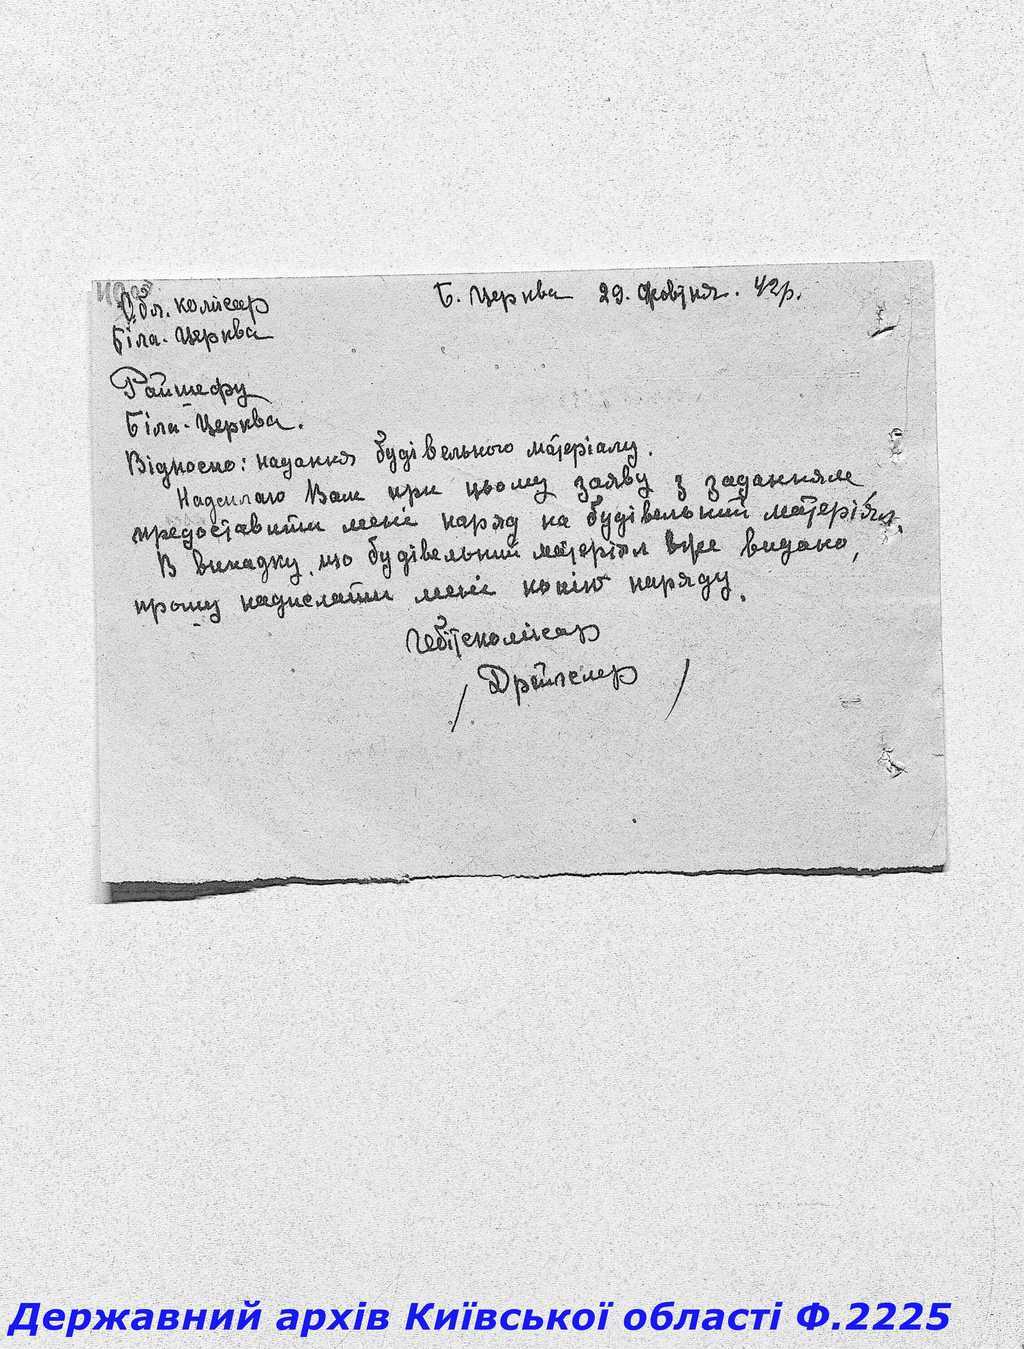 Обл. комісар
Б. Церква 29. Жовтня. 42р.
Біла-Церква
Райшефу
Біла-Церква.
Відносно: надання будівельного матеріалу.
Надсилаю Вам при цьому заяву з заданням
предоставити мені наряд на будівельний матеріял.
В випадку, що будівельний матеріял вже видано,
прошу надислати мені копію наряду.
Гебітскомісар
/ /
Державний архів Київської області Ф.2225